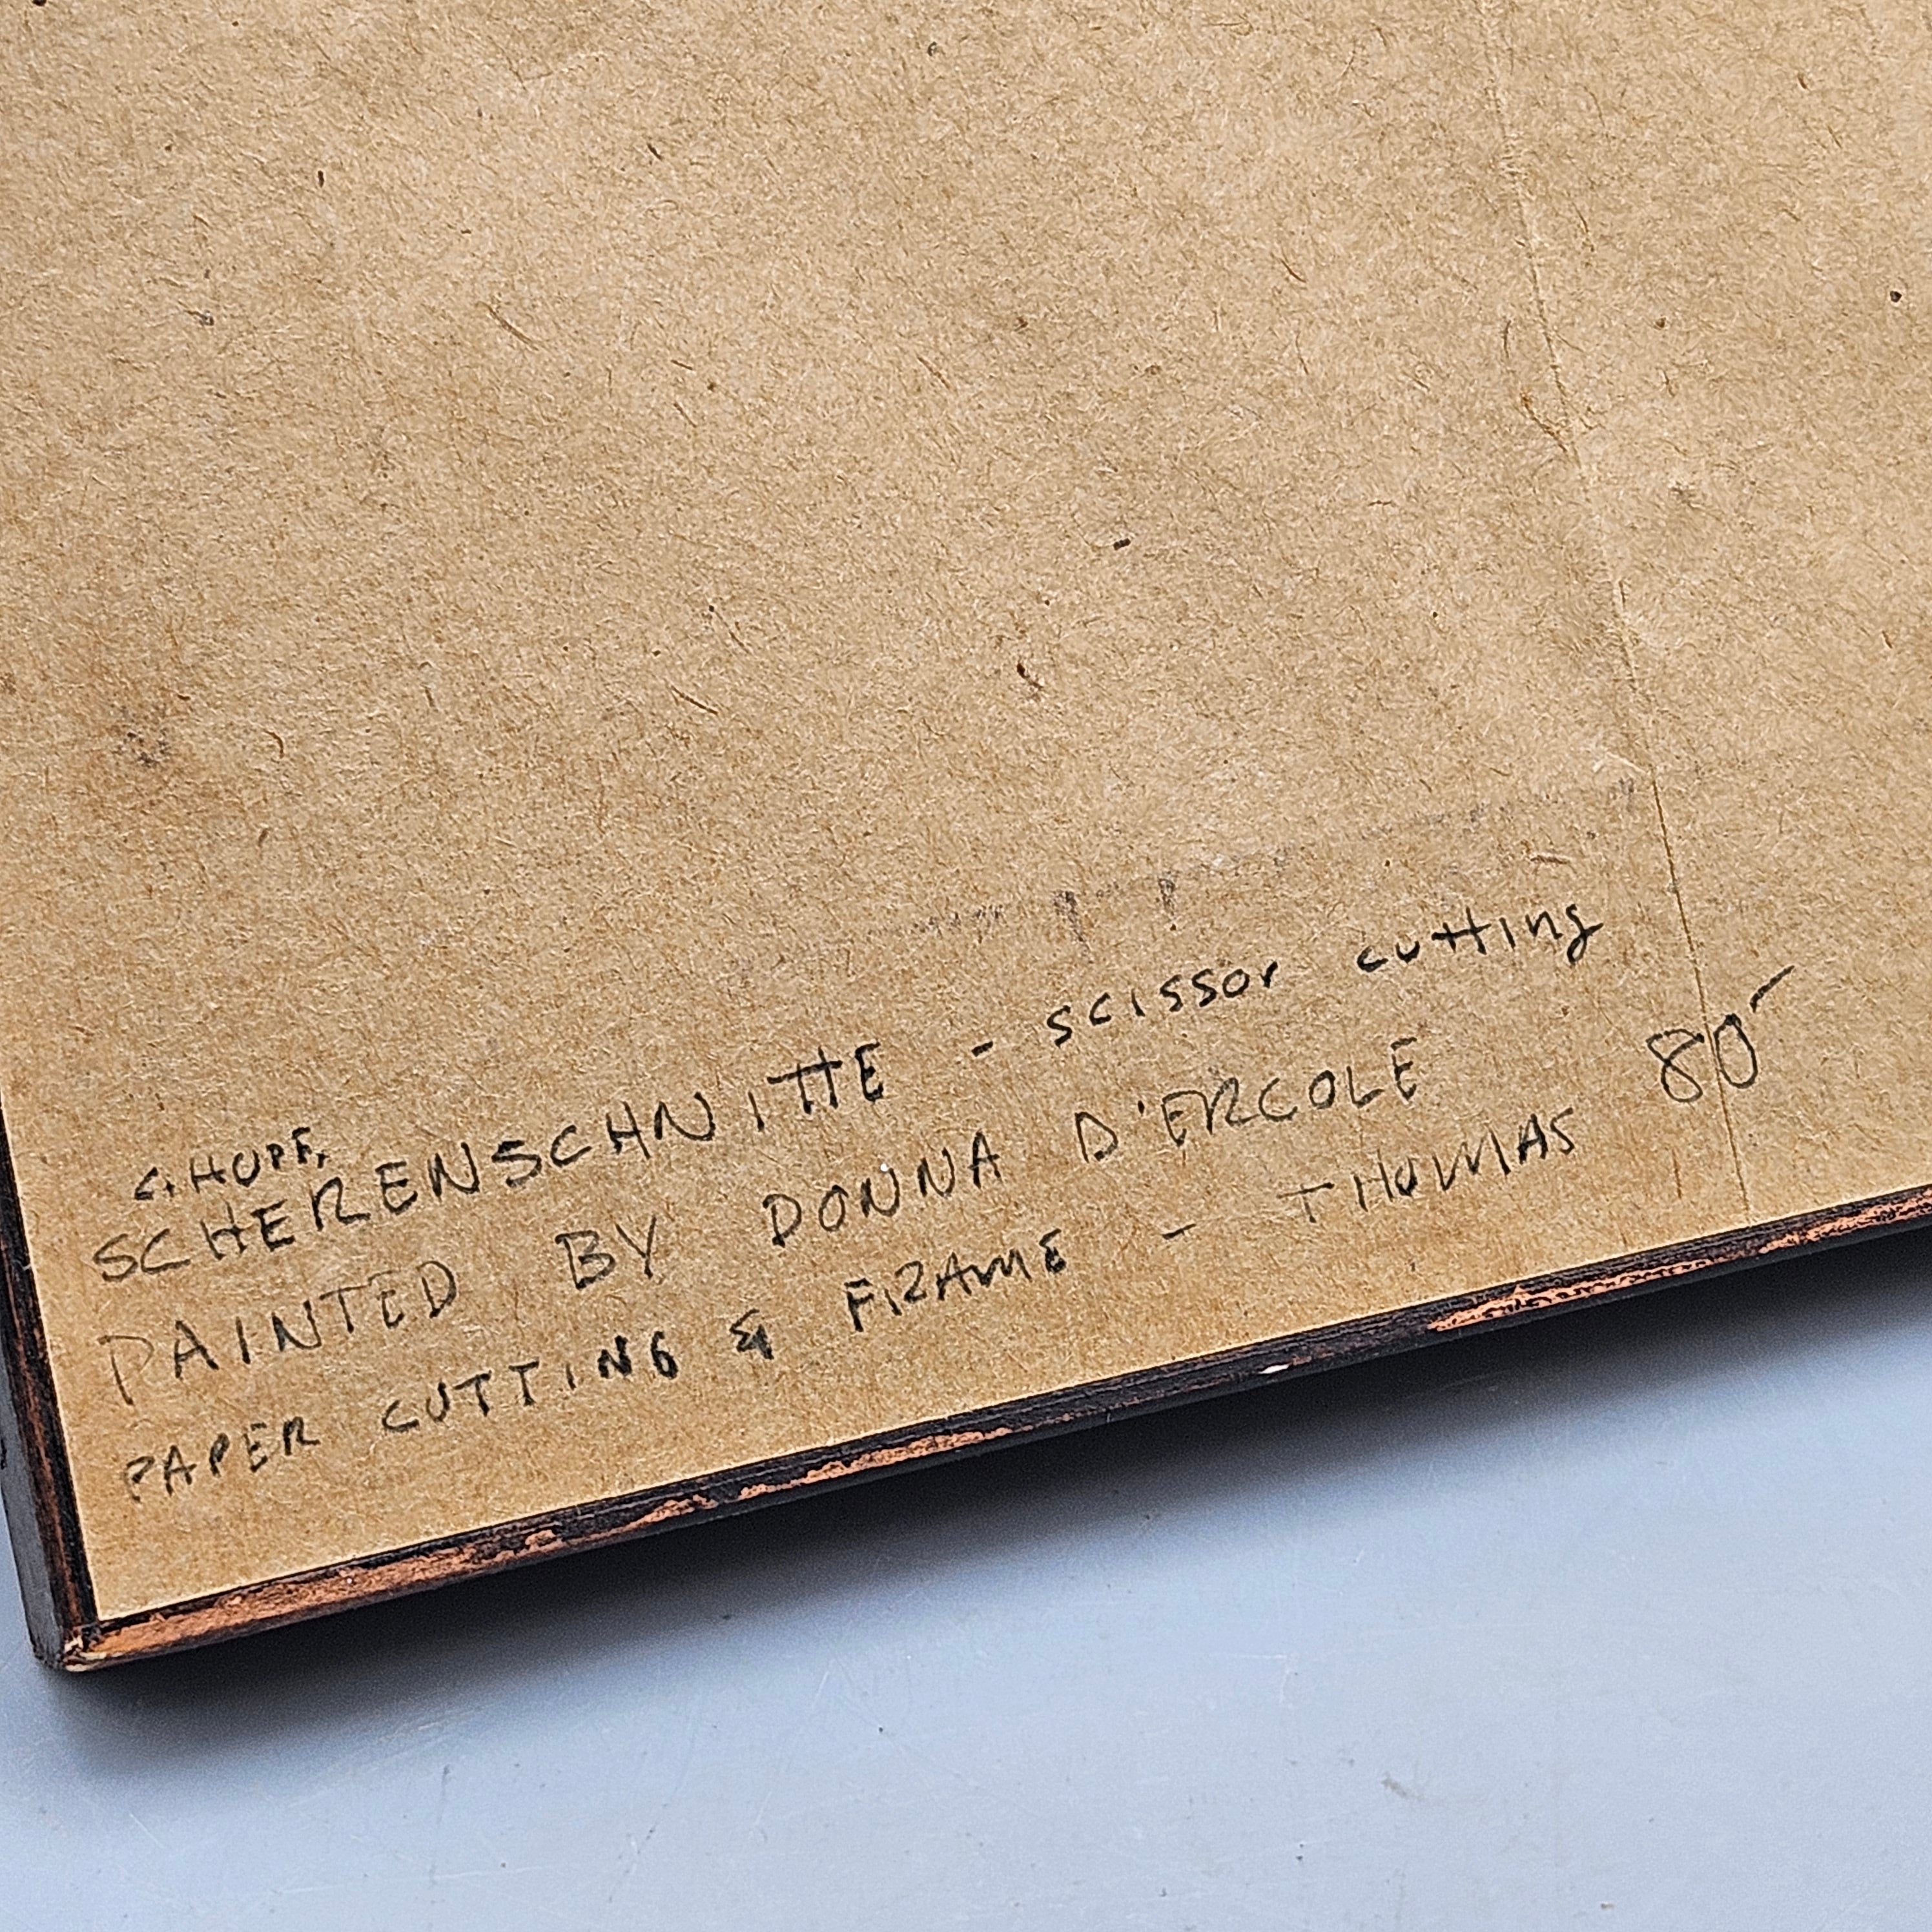 SCHERENSCHNITTE - scissor cutting
PAINTED BY DONNA D'ERCOLE 80-
PAPER CUTTING & FRAME - THOMAS